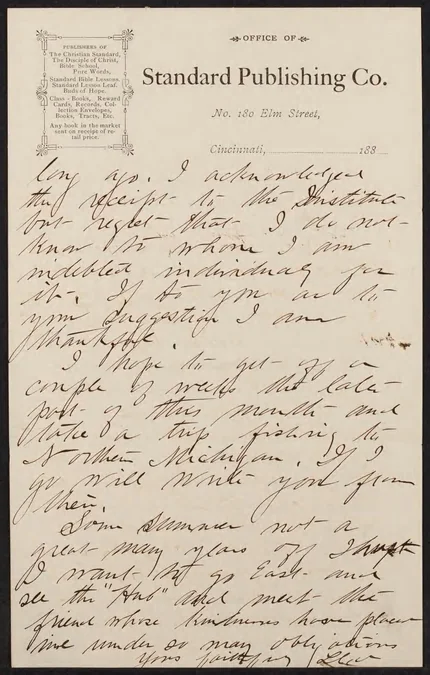 PUBLISHERS OF
The Christian Standard,
The Disciple of Christ,
Bible School,
Pure Words,
Standard Bible Lessons.
Standard Lesson Leaf.
Buds of Hope.
Class-Books, Reward
Cards, Records, Col-
lection Envelopes,
Books, Tracts, Etc.
Any book in the market
sent on receipt of re-
tail price.
OFFICE OF
Standard Publishing Co.
No. 180 Elm Street,
Cincinnati, 188
long ago. I acknowledged
the receipt to the Institute
but regret that I do not
know to whom I am
indebted individually for
it. If to you or to
your suggestion I am
thankful.
I hope to get off a
couple of weeks the later
part of this month and
take a trip fishing to
Northern Michigan. If I
go will write you from
there.
Some summer not a
great many years off I hope
I want to go East and
see the "Hub" and meet the
friend whose kindnesses have placed
me under so many obligations
Yours faithfully